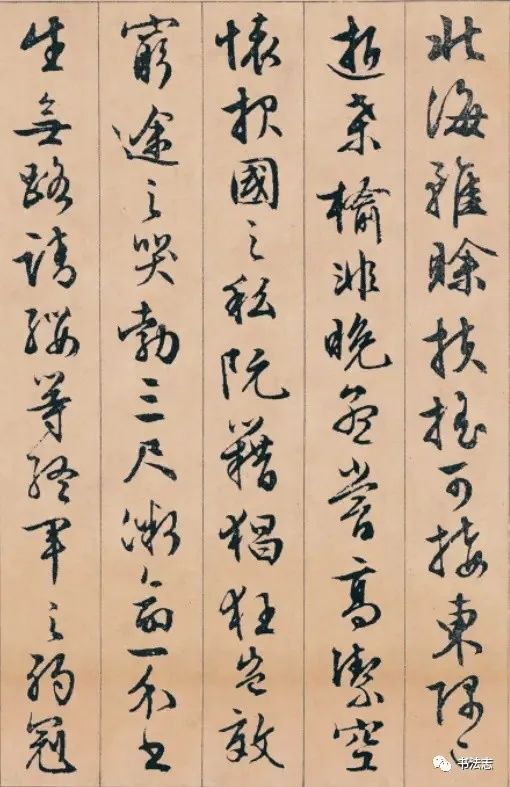 北海雖賒扶搖可接東隅已
逝桑榆非晚孟嘗高潔空
懷報國之私阮籍猖狂豈效
窮途之哭勃三尺微命一介書
生無路請纓等終軍之弱冠
书法志